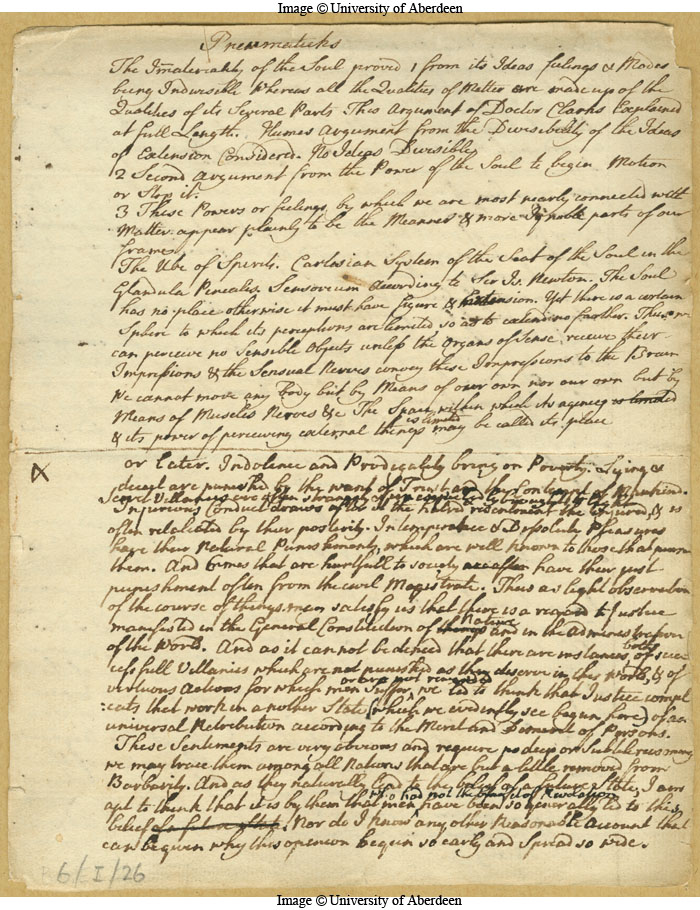 Image © University of Aberdeen
Pneumaticks
The Imateriality of the Soul proved 1 from its Ideas feelings & Modes
being Indivisible Whereas all the Qualities of Matter are made up of the
Qualities of its Several Parts This Argument of Doctor Clarks Explained
at full Length. Humes Argument from the Divisibility of the Ideas
of Extension Considered. No Ideas Divisible
2 Second Argument from the Power of the Soul to begin Motion
or Stop it.
3 These Powers or feelings by which we are most nearly connected with
Matter appear plainly to be the Meanest & more Ignoble parts of our
frames
The Ube of Spirits. Cartesian System of the Seat of the Soul in the
Glandula Pinealis. Sensorium according to Sir Is. Newton. The Soul
has no place otherwise it must have figure & extension. Yet there is a certain
Sphere to which its perceptions are limited so as to extend no farther. Thus we
can perceive no Sensible Objects unless the Organs of Sense receive their
Impressions & the Sensual Nerves convey these Impressions to the Brain
We cannot move any Body but by Means of our own nor our own but by
Means of Muscles Nerves &c The Space within which its agency is limited
is limited
& its power of perceiving external things may be called its place
X or Later. Indolence and Prodigality bring on Poverty. Lying &
deceit are punished by the want of Trust and the Contempt of Mankind.
Secret Villanies are often strangely
Injurious Conduct draws after it the hatred resentment the injured, & is
often retaliated by their posterity. Intemperance & Dissolute Pleasures
have their Natural Punishments, which are well known to those that pursue
them. And Crimes that are hurtfull to society have their just
punishment often from the civil Magistrate. Thus a slight observation
of the course of things may satisfy us that there is a regard to Justice
Nature
manifested in the General Constitution of things and in the administration
of the World. And as it cannot be denied that there are instances both of suc
cessfull Villanies which are not punished as they deserve in this World, & of
or are not rewarded
virtuous Actions for which men suffer, we are led to think that Justice compl
eats that work in another State (which we evidently see begun here) of an
universal Retribution according to the Merit and Demerit of Persons.
These Sentiments are very obvious and require no deep or Subtile reasoning
we may trace them among all Nations that are but a little removed from
Barbarity. And as they naturally lead to the belief of a future State, I am
who had not the benefit of Revelation
apt to think that it is by them that men have been so generally led to the
belief of a future State. Nor do I know any other Reasonable account that
can be given why this opinion begun so early and Spread so wide.
6/I/26
Image © University of Aberdeen